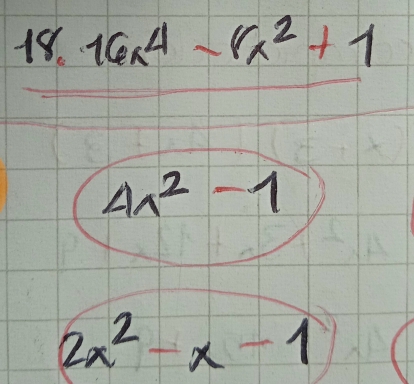 18. 16x⁴ - 8x² + 1
4x² - 1
2x² - x - 1